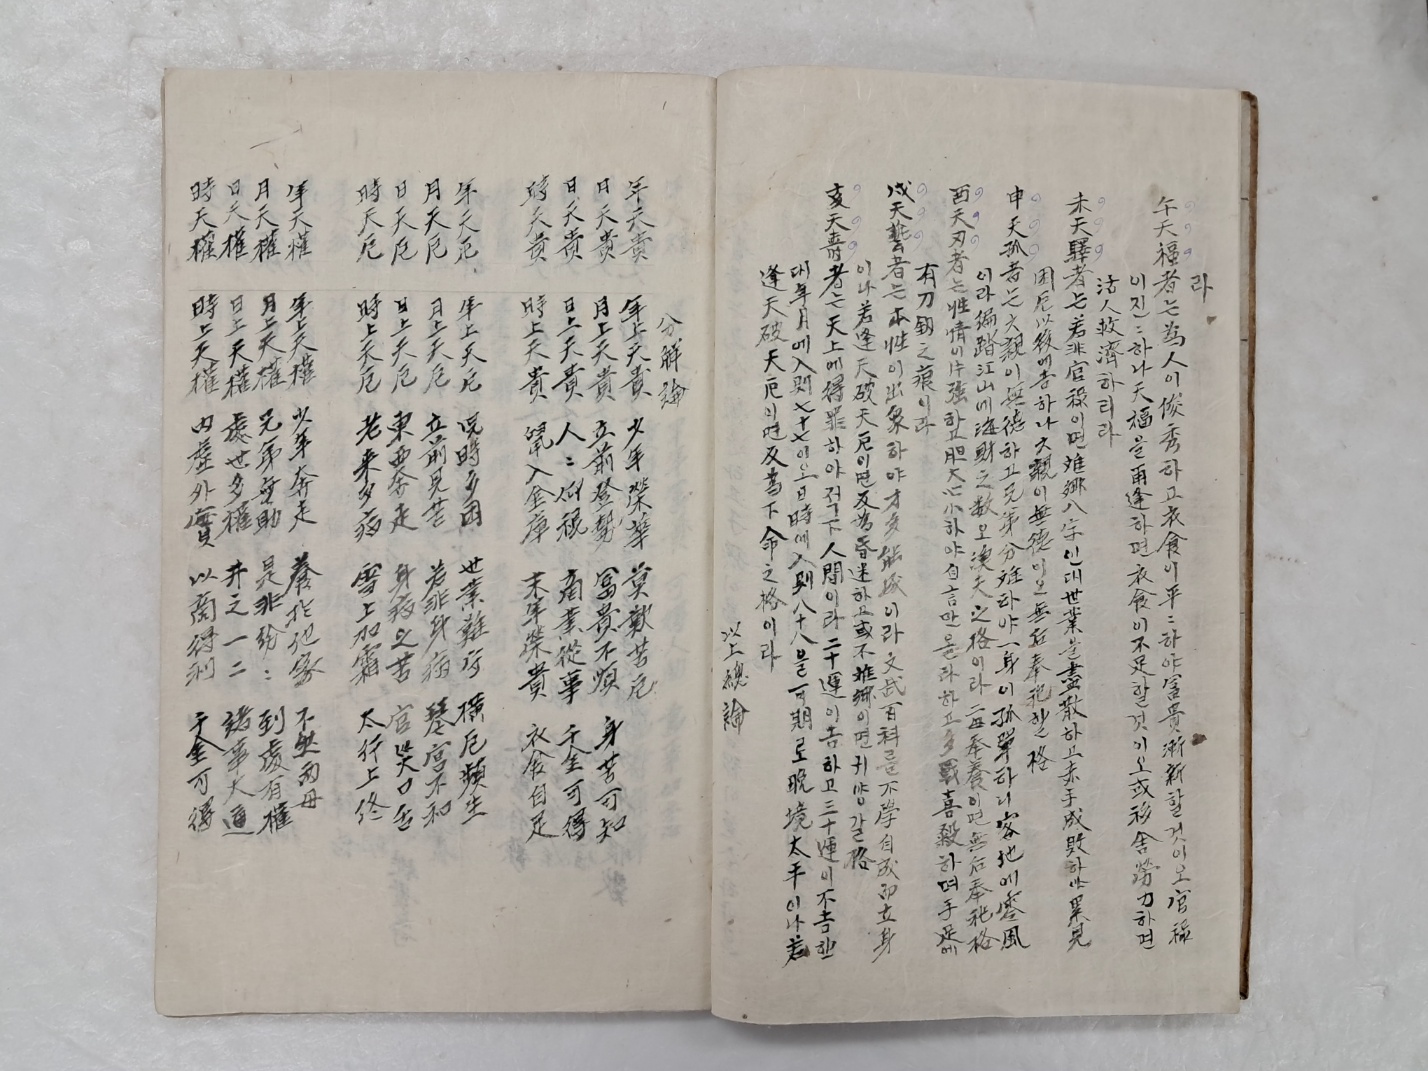 라
午天福者는 為人이 俊秀하고 衣食이 平〻하야 富貴漸新할 것이오 官祿
이진〻하나 天福을 再逢하면 衣食이 不足할 것이오 或移舍勞力하면
活人救濟하리라
未天驛者는 若非官祿이면 離鄕八字인대 世業을 盡散하고 赤手成敗하야 累見
困厄以後에 吉하나 六親이 無德이오 無后奉祀할 格
申天孤者는 六親이 無德하고 兄弟分離라 一身이 孤單타니 客地에 風
이라 編踏江山에 海財之數오 漁夫之格이라 每奉養이면 無后奉祀格
酉天刃者는 性情이 强하고 胆大心小하야 自言만 올라하고 多戰喜殺하며 手足에
有刀釰之痕이라
戌天藝者는 本性이 出衆하야 才多能成이라 文武百科를 不學自成而立身
이나 若逢天破天厄이면 反為昏迷하고 或不離鄕이면 귀양갈 格
亥天壽者는 天上에 得罪하야 적下人間이라 二十運이 吉하고 三十運이 不吉한
대 年月에 入則 七十七이오 日時에 入則 八十八을 可期로 晩境太平이나 若
逢天破天厄이면 反為下命之格이라
以上總論
分解論
年天貴 年上天貴 少年榮華 莫歎苦厄 身苦可知
月天貴 月上天貴 立前登勢 富貴不煩 千金可得
日天貴 日上天貴 人〻仰視 商業從事 衣食自足
時天貴 時上天貴 鼠入金庫 末年榮貴
年天厄 年上天厄 兒時多困 世業難守 橫厄頻生
月天厄 月上天厄 立前見苦 若非身病 琴宮不和
日天厄 日上天厄 東西奔走 身病又苦 官災口舌
時天厄 時上天厄 老來多病 雪上加霜 太行上終
年天權 年上天權 少年奔走 養於他家 不然兩母
月天權 月上天權 兄弟無助 是非紛〻 到處有權
日天權 日上天權 處世多權 井之一二 諸事大通
時天權 時上天權 內虛外實 以商得利 千金可得